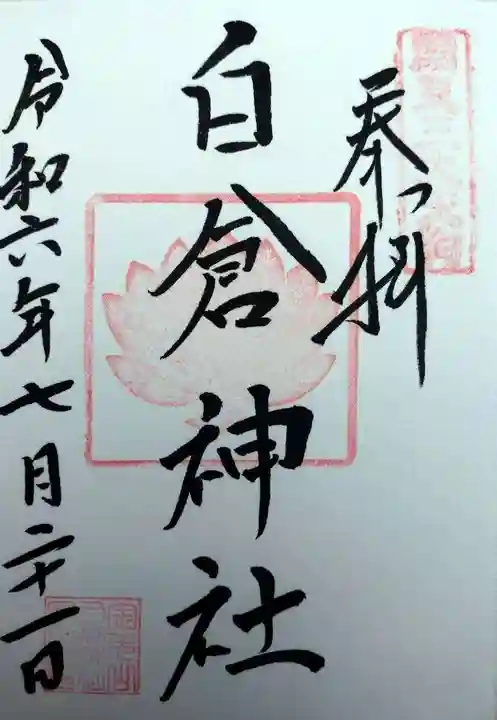 奉拝
白倉神社
令和六年七月二十一日